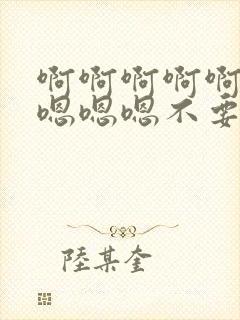 啊啊啊啊啊
嗯嗯嗯不要
陸某奎